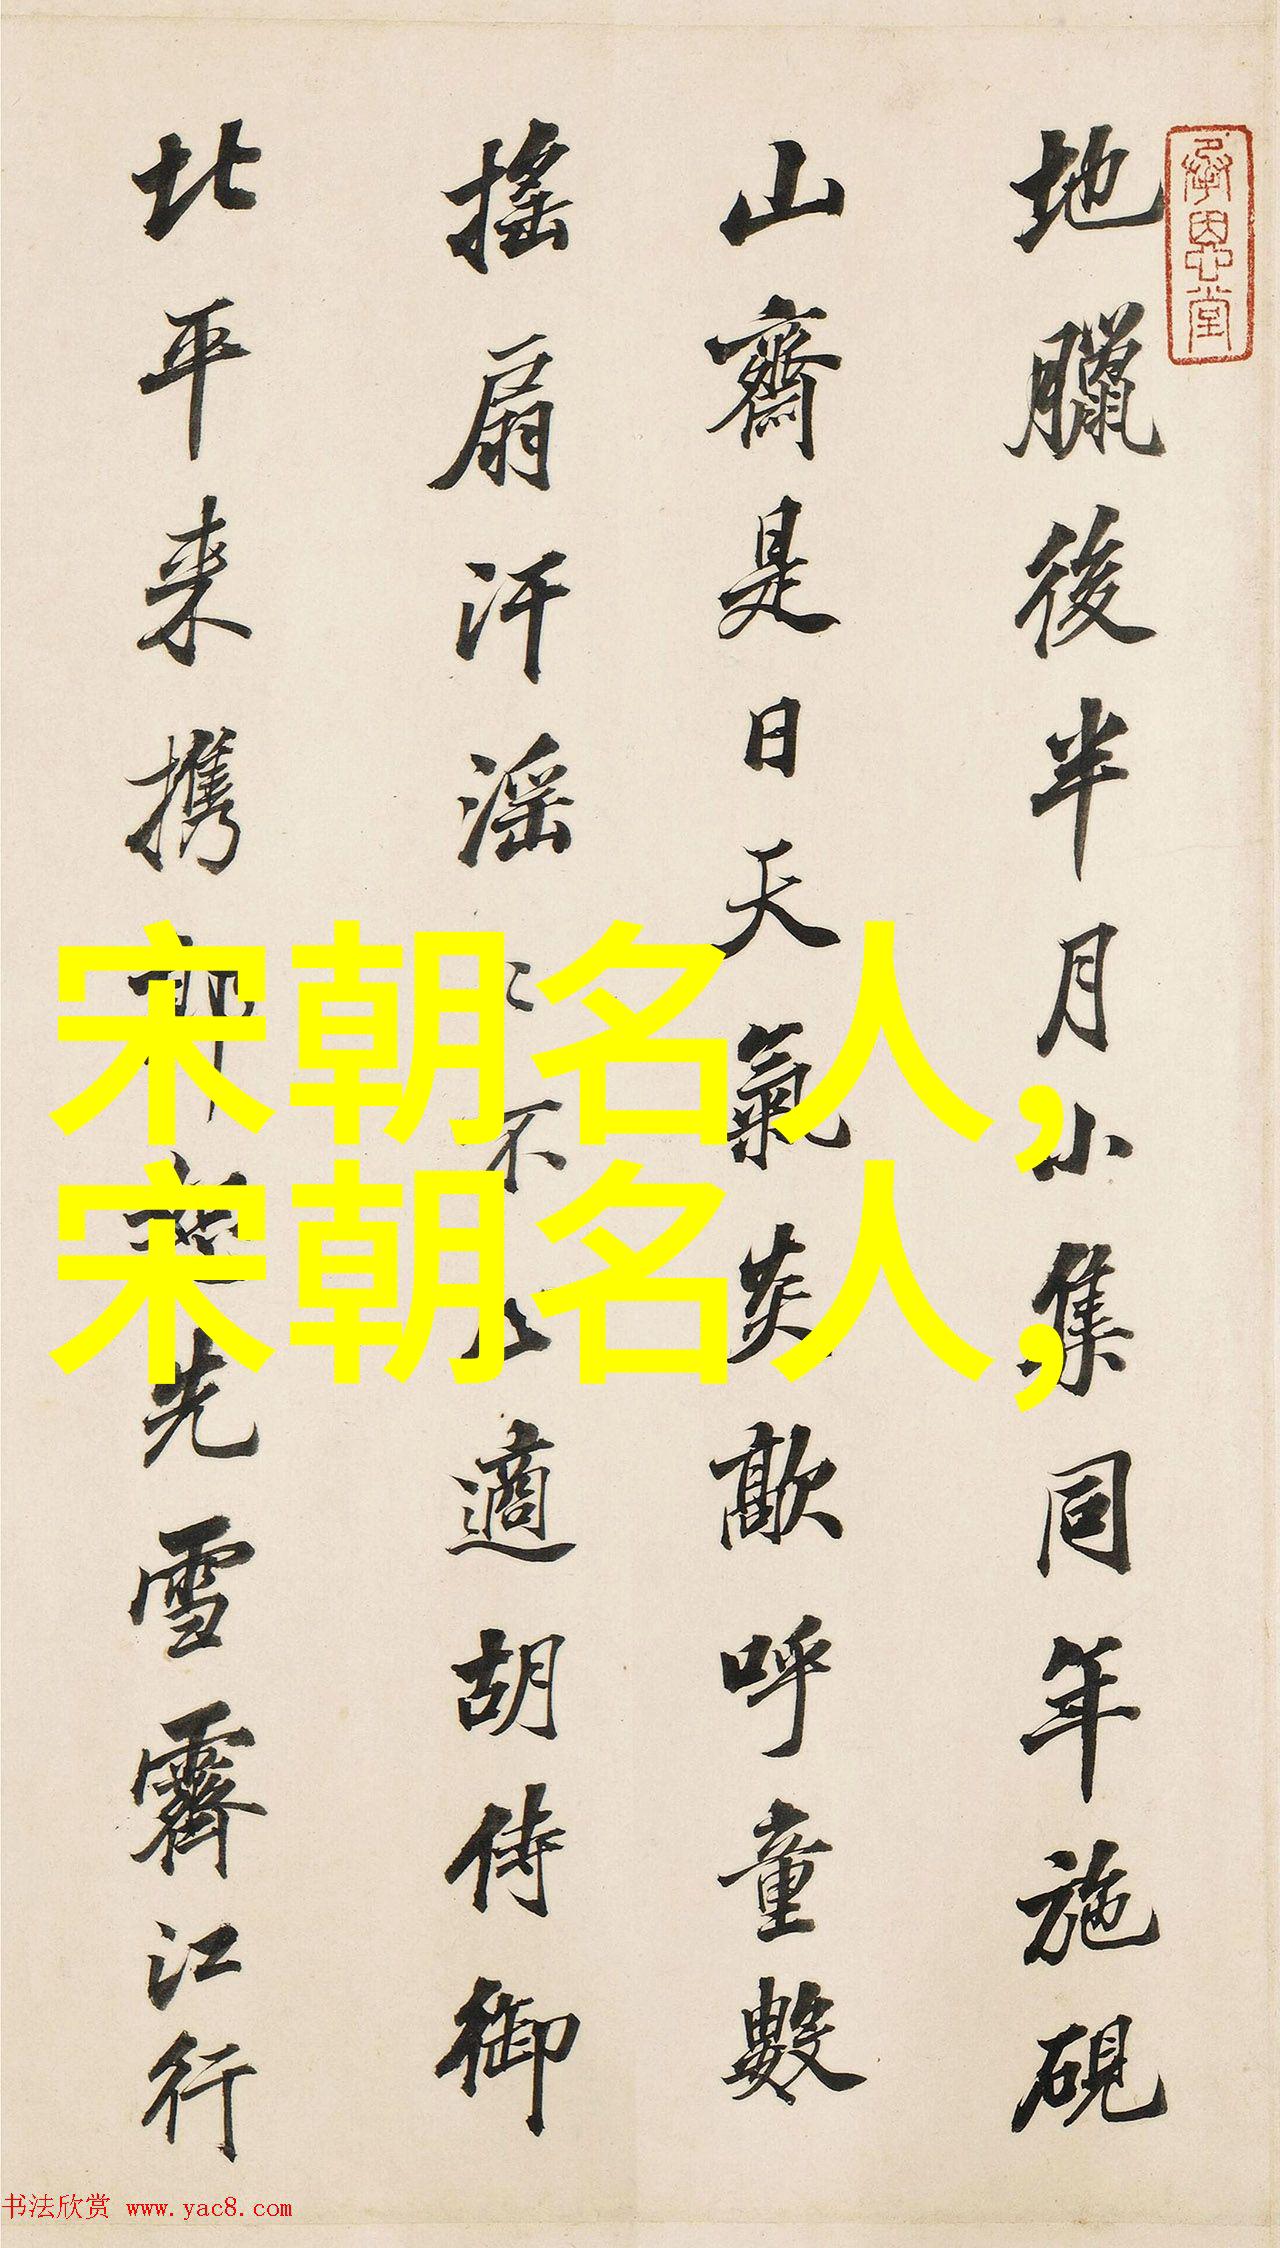 承恩堂
地臘後半月小集同年施硯
山齋是日天氣炎歊呼童數
搖扇汗滛〻不止適胡侍御
北平来携郭先雪霽江行
宋朝名人,
宋朝名人,
书法欣赏 www.yac8.com